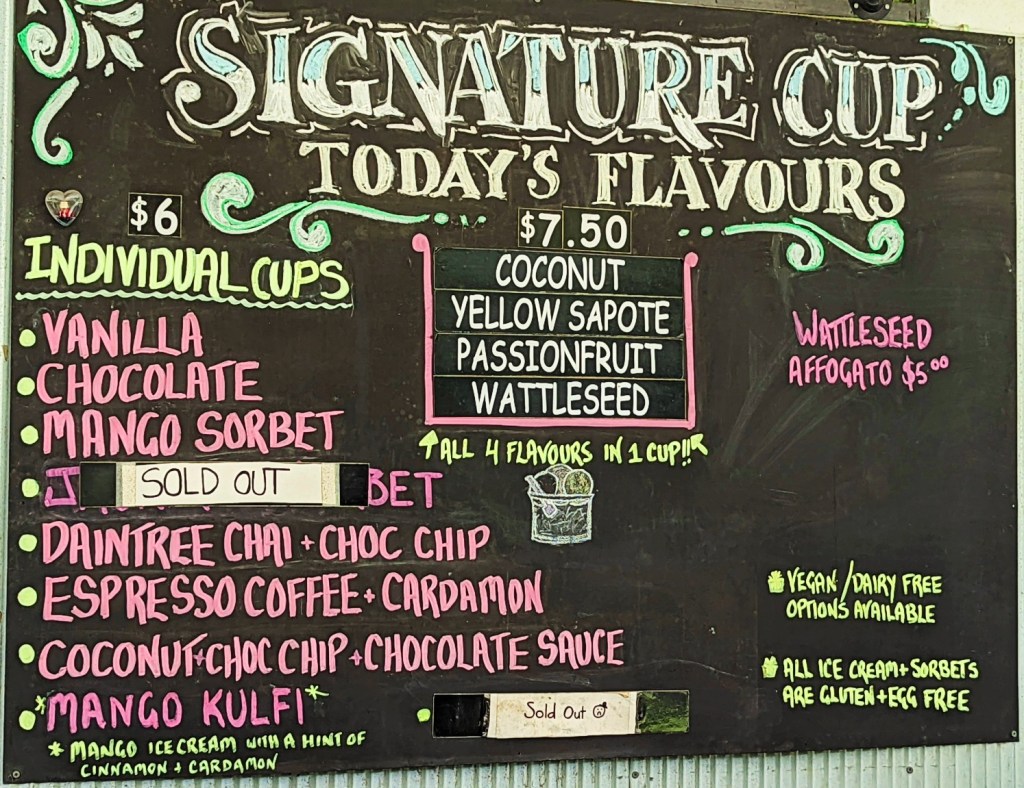 SIGNATURE CUP
TODAY'S FLAVOURS
$6
INDIVIDUAL CUPS
VANILLA
CHOCOLATE
MANGO SORBET
SOLD OUT
DAINTREE CHAI + CHOC CHIP
ESPRESSO COFFEE + CARDAMON
COCONUT + CHOC CHIP + CHOCOLATE SAUCE
*MANGO KULFI*
* MANGO ICE CREAM WITH A HINT OF
CINNAMON + CARDAMON
$7.50
COCONUT
YELLOW SAPOTE
PASSIONFRUIT
WATTLESEED
ALL 4 FLAVOURS IN 1 CUP!!
Sold Out
WATTLESEED
AFFOGATO $5.00
VEGAN/DAIRY FREE
OPTIONS AVAILABLE
ALL ICE CREAM + SORBETS
ARE GLUTEN + EGG FREE